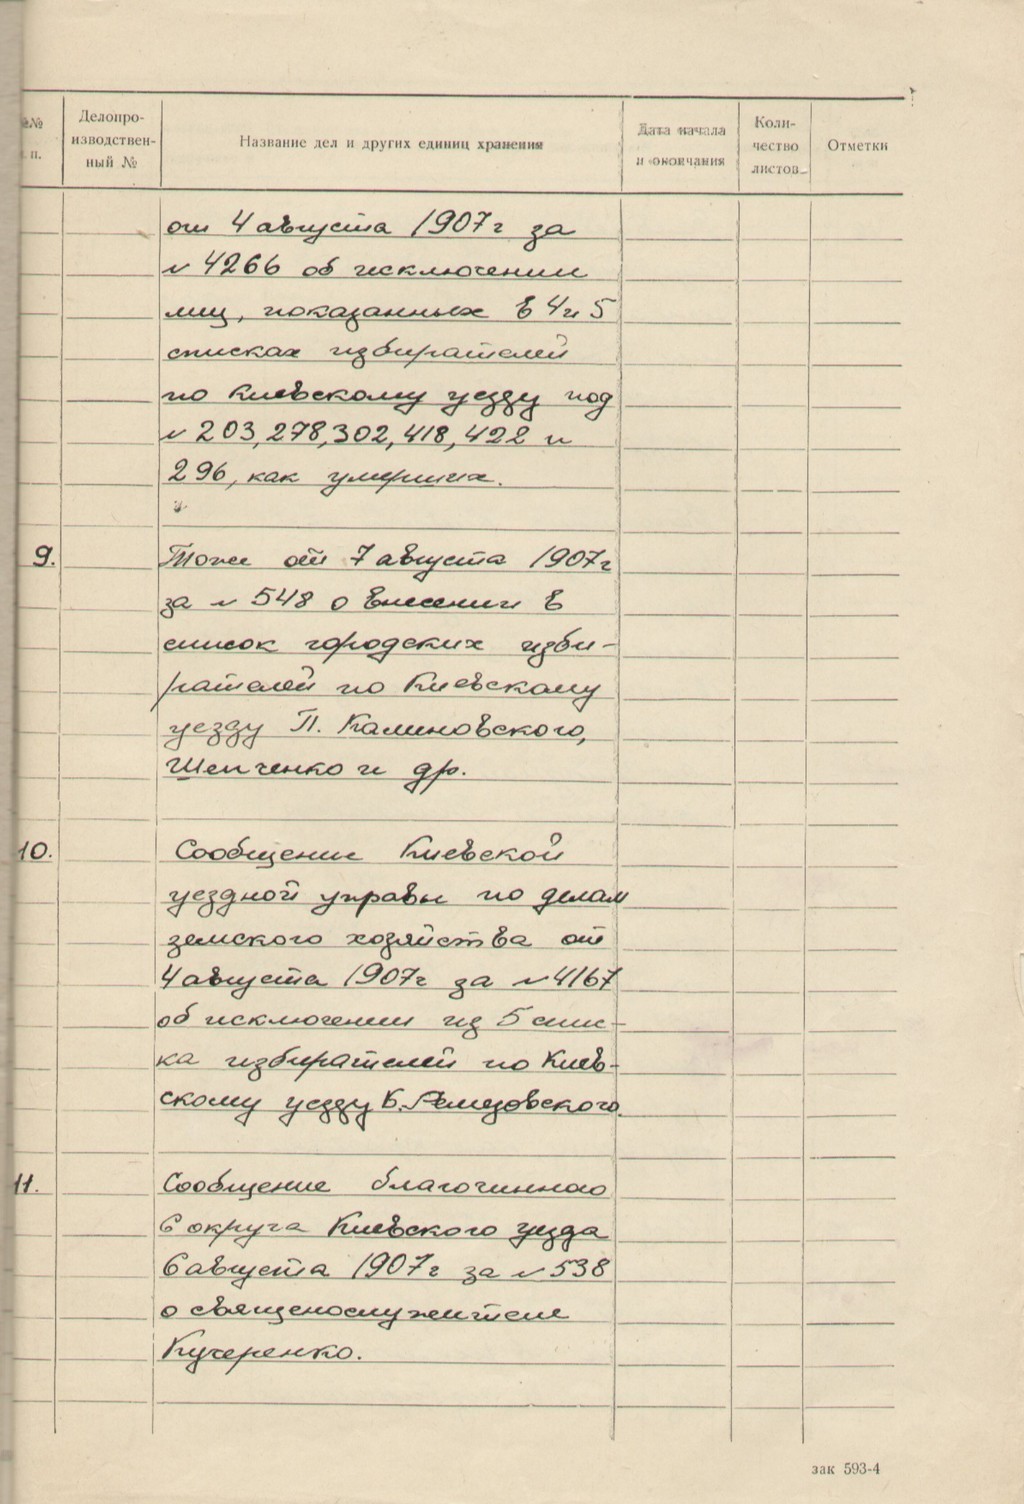 №№
п.
Делопро-
изводствен-
ный №
Название дел и других единиц хранения
Дата начала
и окончания
Коли-
чество
листов
Отметки
от 4 августа 1907 г за
№ 4266 об исключении
лиц, показанных в 4 и 5
списках избирателей
по Киевскому уезду под
№ 203, 278, 302, 418, 422 и
296, как умерших.
9. Тоже от 7 августа 1907 г
за № 548 о внесении в
список городских изби-
рателей по Киевскому
уезду П. Калиновского,
Шевченко и др.
10. Сообщение Киевской
уездной управы по делам
земского хозяйства от
4 августа 1907 г за № 4167
об исключении из 5 спис-
ка избирателей по Киев-
скому уезду Б.
11. Сообщение благочинного
6 округа Киевского уезда
6 августа 1907 г за № 538
о священослужителе
Кучеренко.
зак 593-4